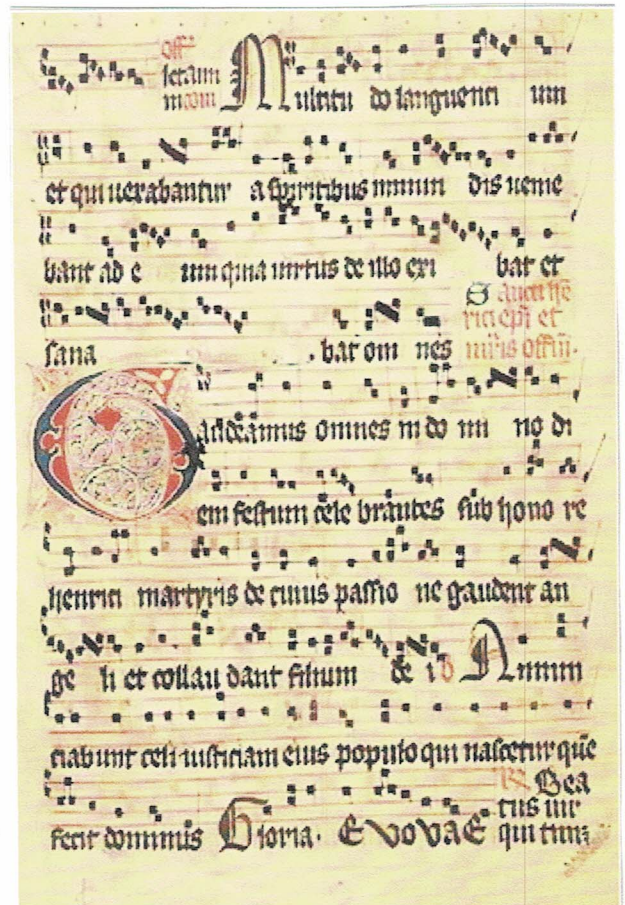 Multitu do languenti um
et qui uexabantur a spiritibus inmun dis uenie
bant ad e um quia uirtus de illo exi bat et
sana bat om nes
Gaudeamus omnes in do mi no di
em festum cele brantes sub hono re
henrici martyris de cuius passio ne gaudent an
ge li et collau dant filium de i Annun
ciabunt celi iusticiam eius populo qui nascetur quē
fecit dominus Gloria. EVOVAE Bea
tus uir
qui